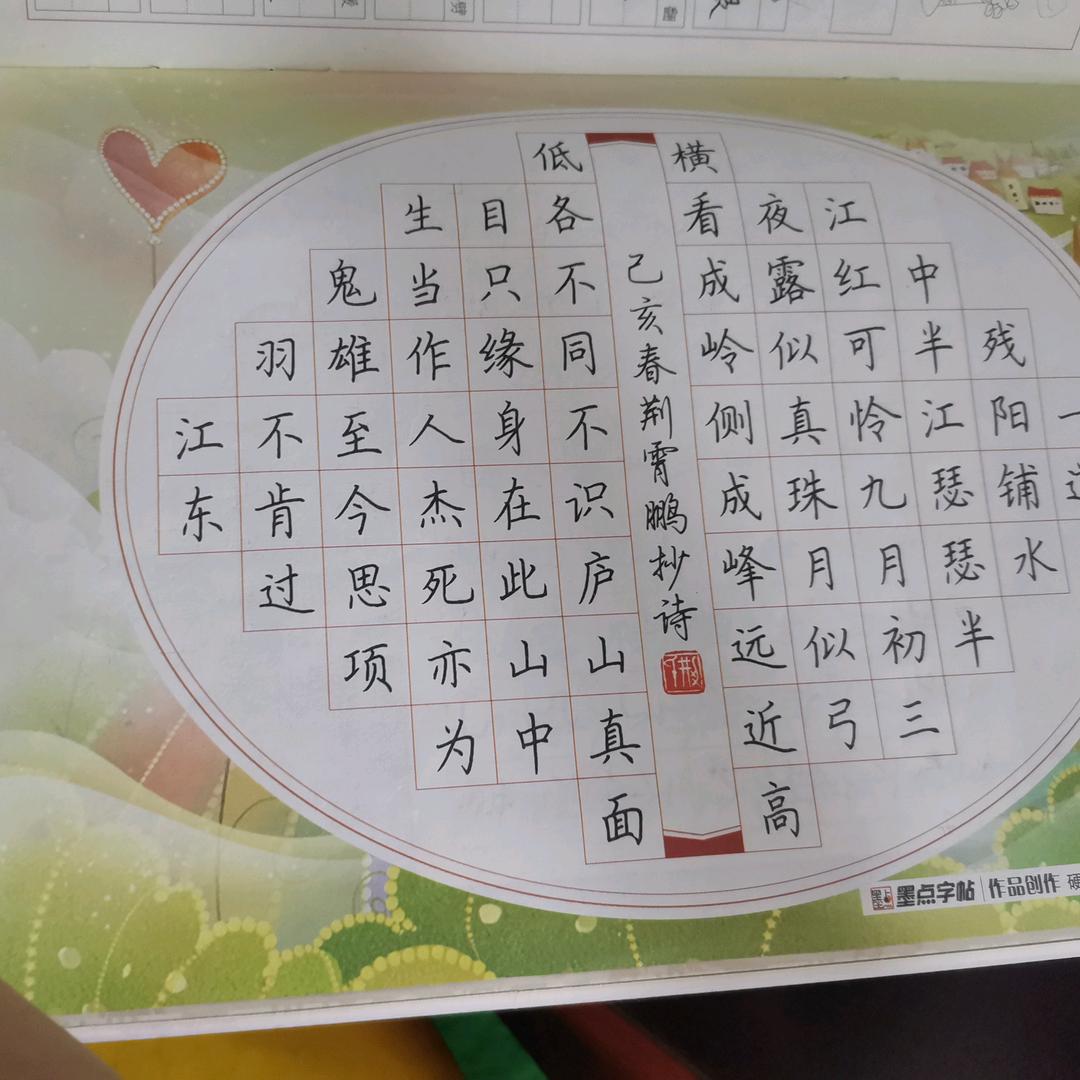 一
残阳铺水
中半江瑟瑟半
江红可怜九月初三
夜露似真珠月似弓
横看成岭侧成峰远近高
己亥春荆霄鹏抄诗
低各不同不识庐山真面
目只缘身在此山中
生当作人杰死亦为
鬼雄至今思项
羽不肯过
江东
墨点字帖 作品创作